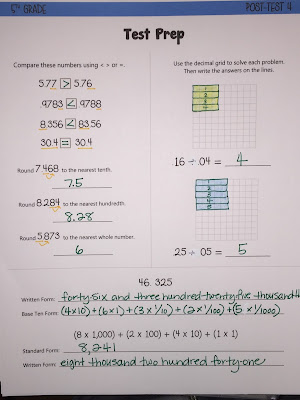 5TH GRADE POST-TEST 4
Test Prep
Compare these numbers using < > or =.
5.77 > 5.76
.9783 < .9788
8.356 < 83.56
30.4 = 30.4
Round 7.468 to the nearest tenth.
7.5
Round 8.284 to the nearest hundredth.
8.28
Round 5.873 to the nearest whole number.
6
Use the decimal grid to solve each problem.
Then write the answers on the lines.
1
2
3
4
.16 ÷ .04 = 4
1
2
3
4
5
.25 ÷ .05 = 5
46. 325
Written Form: forty-six and three hundred twenty-five thousandths
Base Ten Form: (4x10)+(6x1)+(3 x 1/10)+(2x 1/100)+(5 x 1/1000)
(8 x 1,000) + (2 x 100) + (4 x 10) + (1 x 1)
Standard Form: 8,241
Written form: eight thousand two hundred forty-one